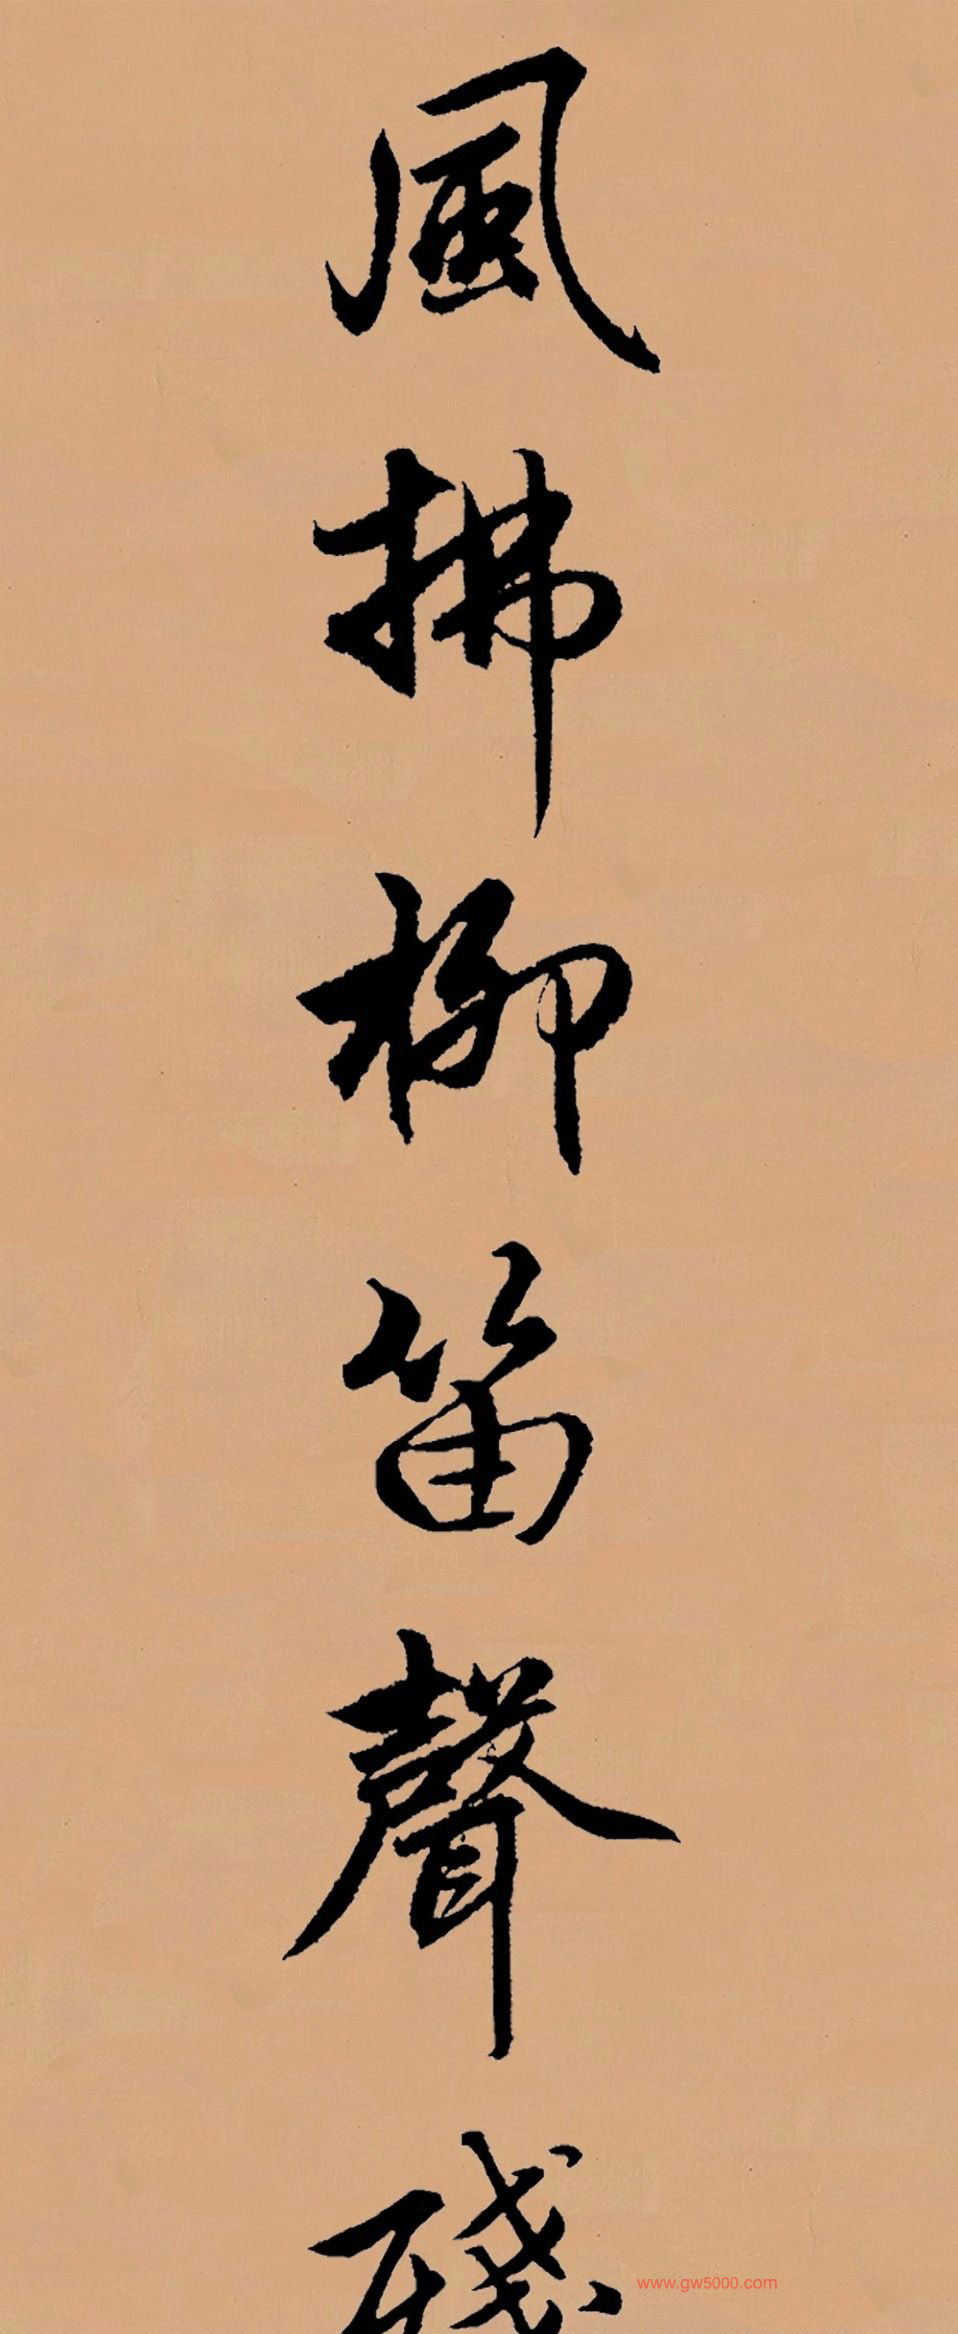 風拂柳笛聲殘
www.gw5000.com